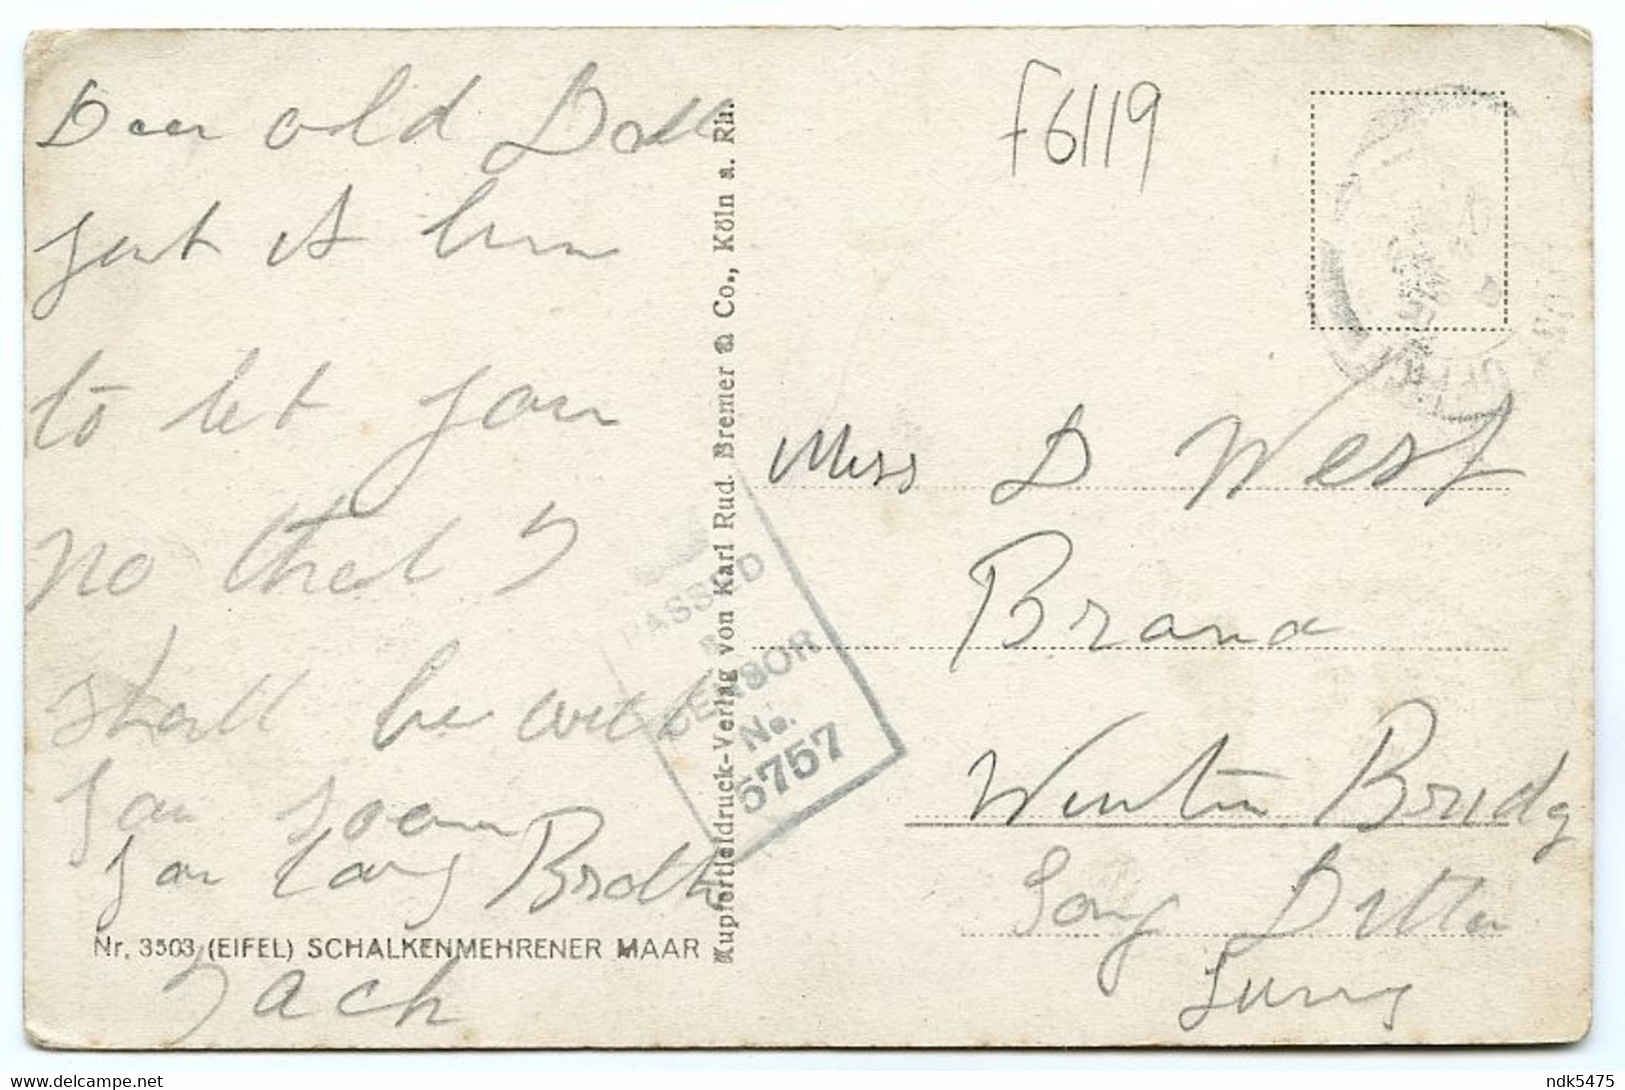 Dear old Doll
just a line
to let you
no that I
shall be with
you soon
your loving Broth
Jack
Nr. 3503 (EIFEL) SCHALKENMEHRENER MAAR
Kupfertiefdruck-Verlag von Karl Rud. Bremer & Co., Köln a. Rh.
PASSED
CENSOR
No.
5757
F6119
Miss D West
Brana
Winton Bridg
Long Ditton
Surry
delcampe.net
ndk5475